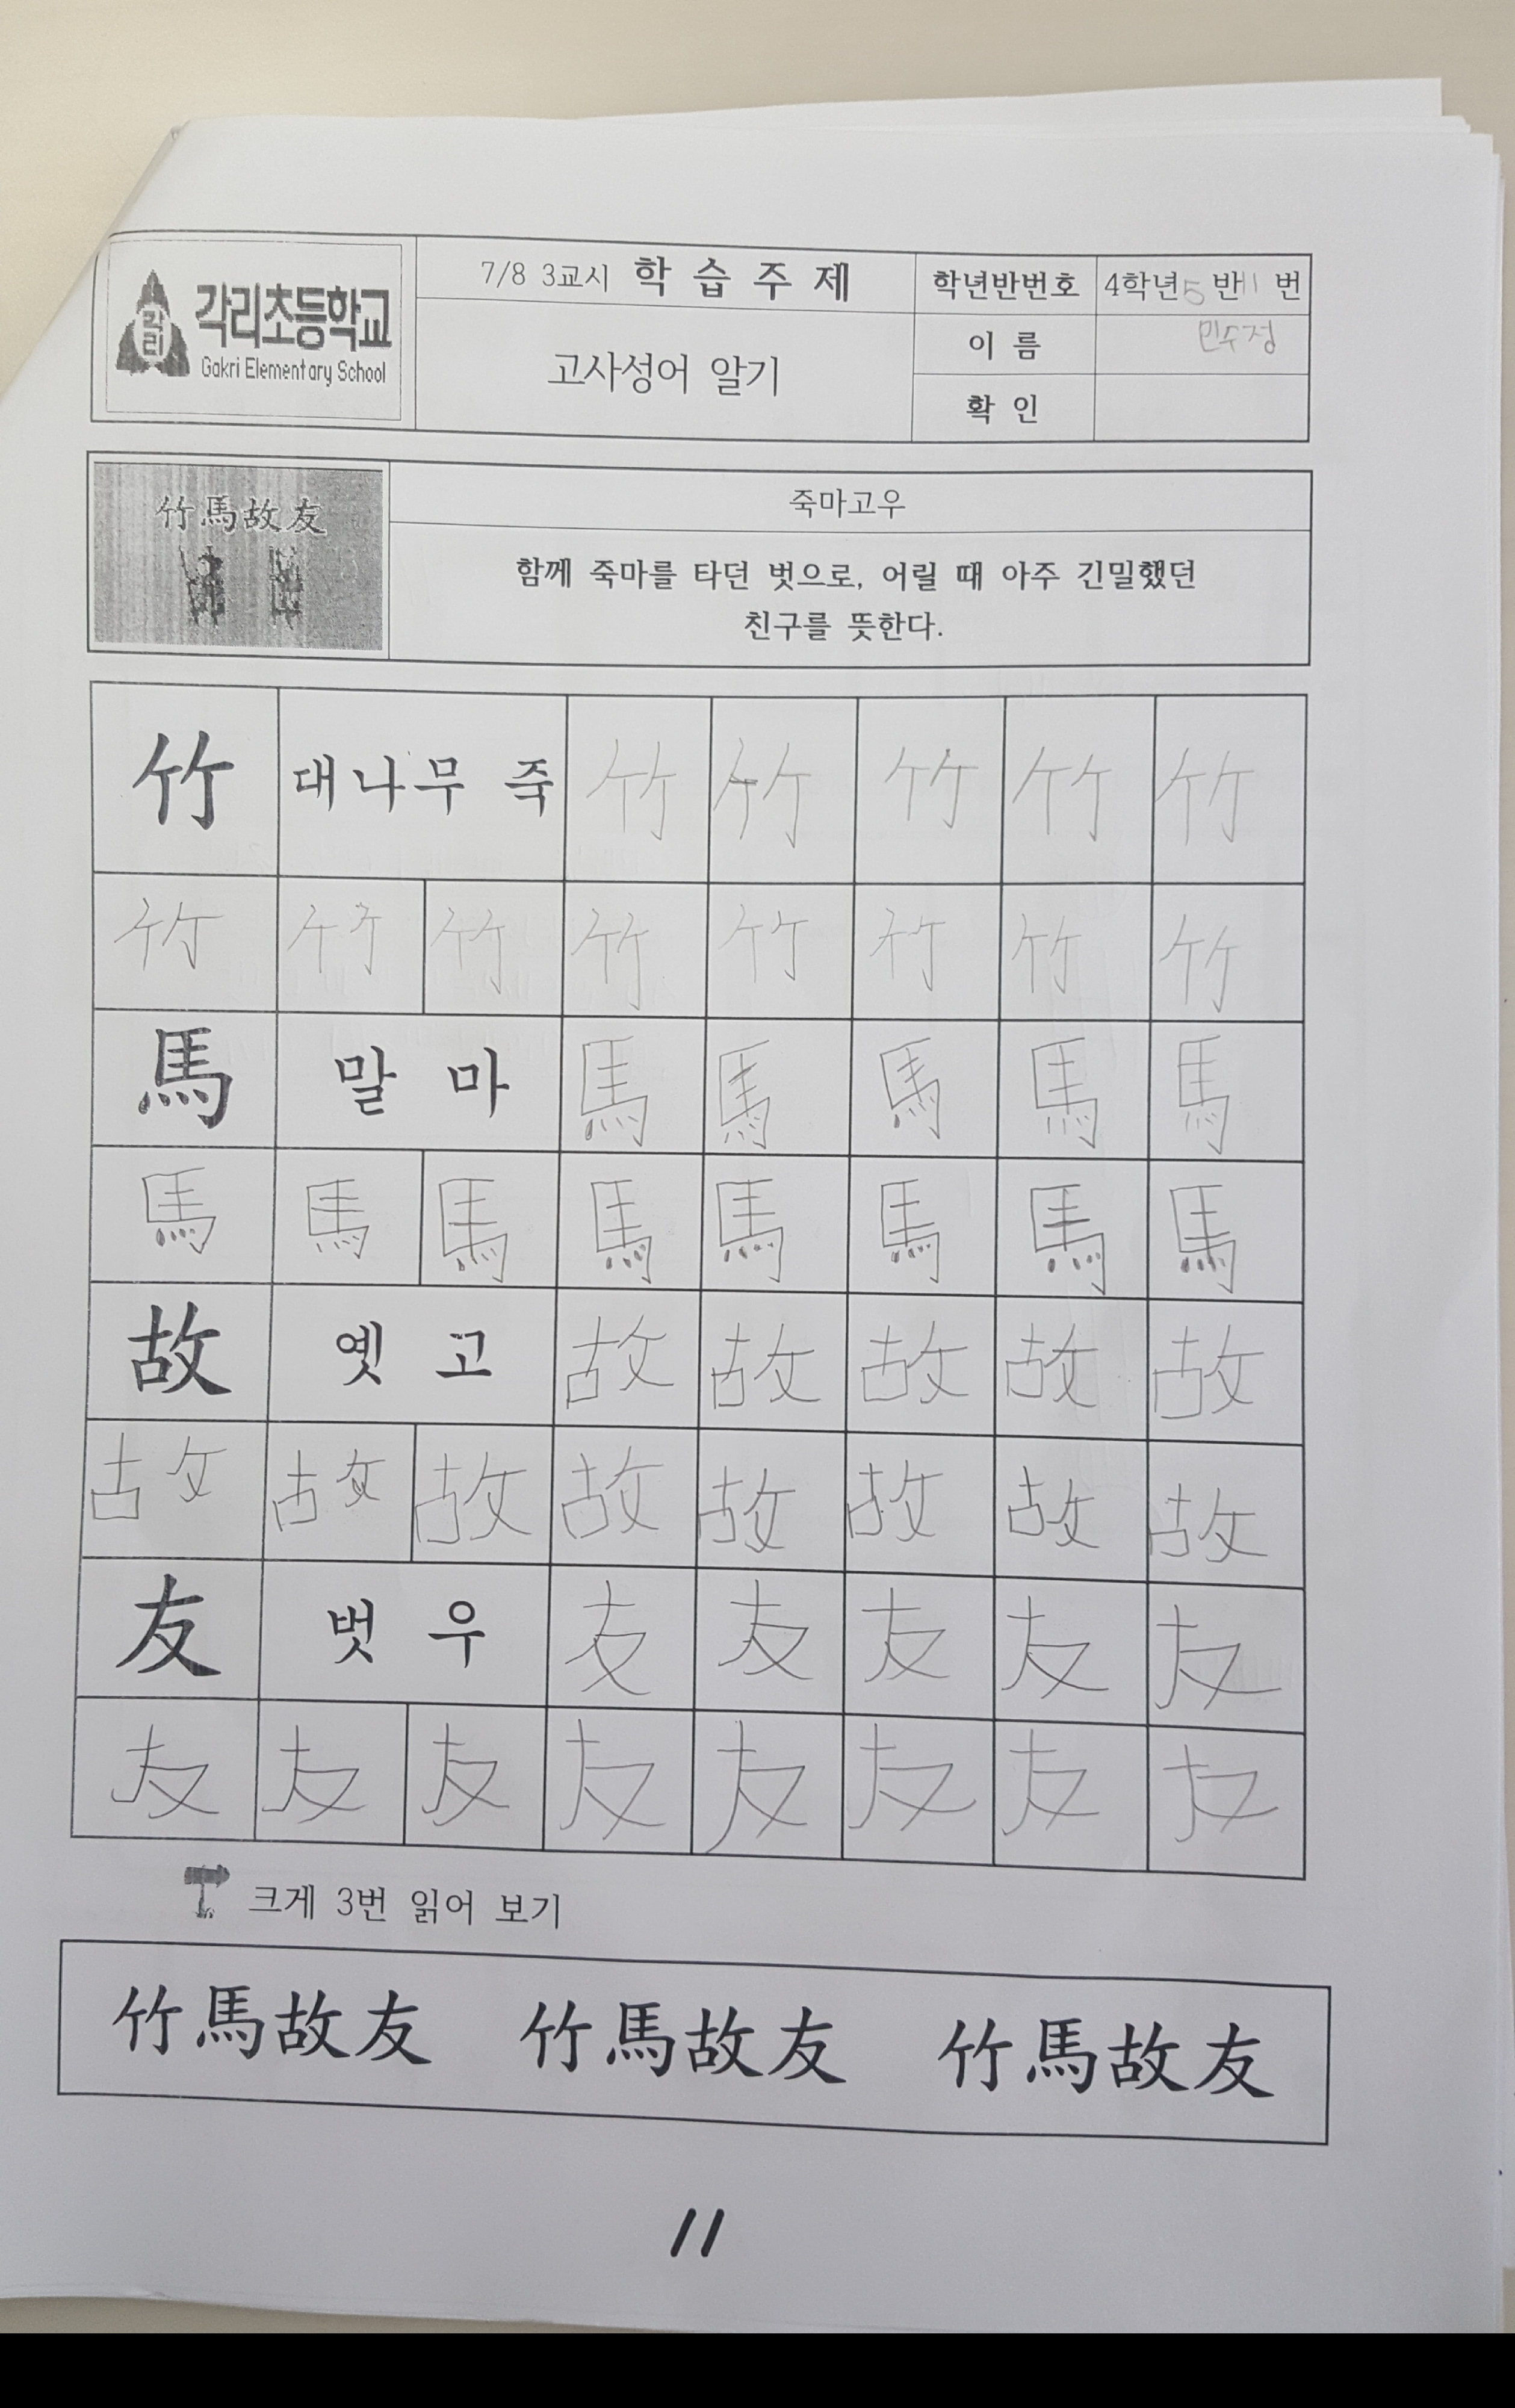 각리
각리초등학교
Gakri Elementary School
7/8 3교시 학 습 주 제
고사성어 알기
학년반번호 4학년 5 반 11 번
이 름 민수정
확 인
竹馬故友
죽마고우
함께 죽마를 타던 벗으로, 어릴 때 아주 긴밀했던
친구를 뜻한다.
竹 대나무 죽 竹 竹 竹 竹 竹
竹 竹 竹 竹 竹 竹 竹 竹
馬 말 마 馬 馬 馬 馬 馬
馬 馬 馬 馬 馬 馬 馬 馬
故 옛 고 故 故 故 故 故
故 故 故 故 故 故 故 故
友 벗 우 友 友 友 友 友
友 友 友 友 友 友 友 友
크게 3번 읽어 보기
竹馬故友 竹馬故友 竹馬故友
11